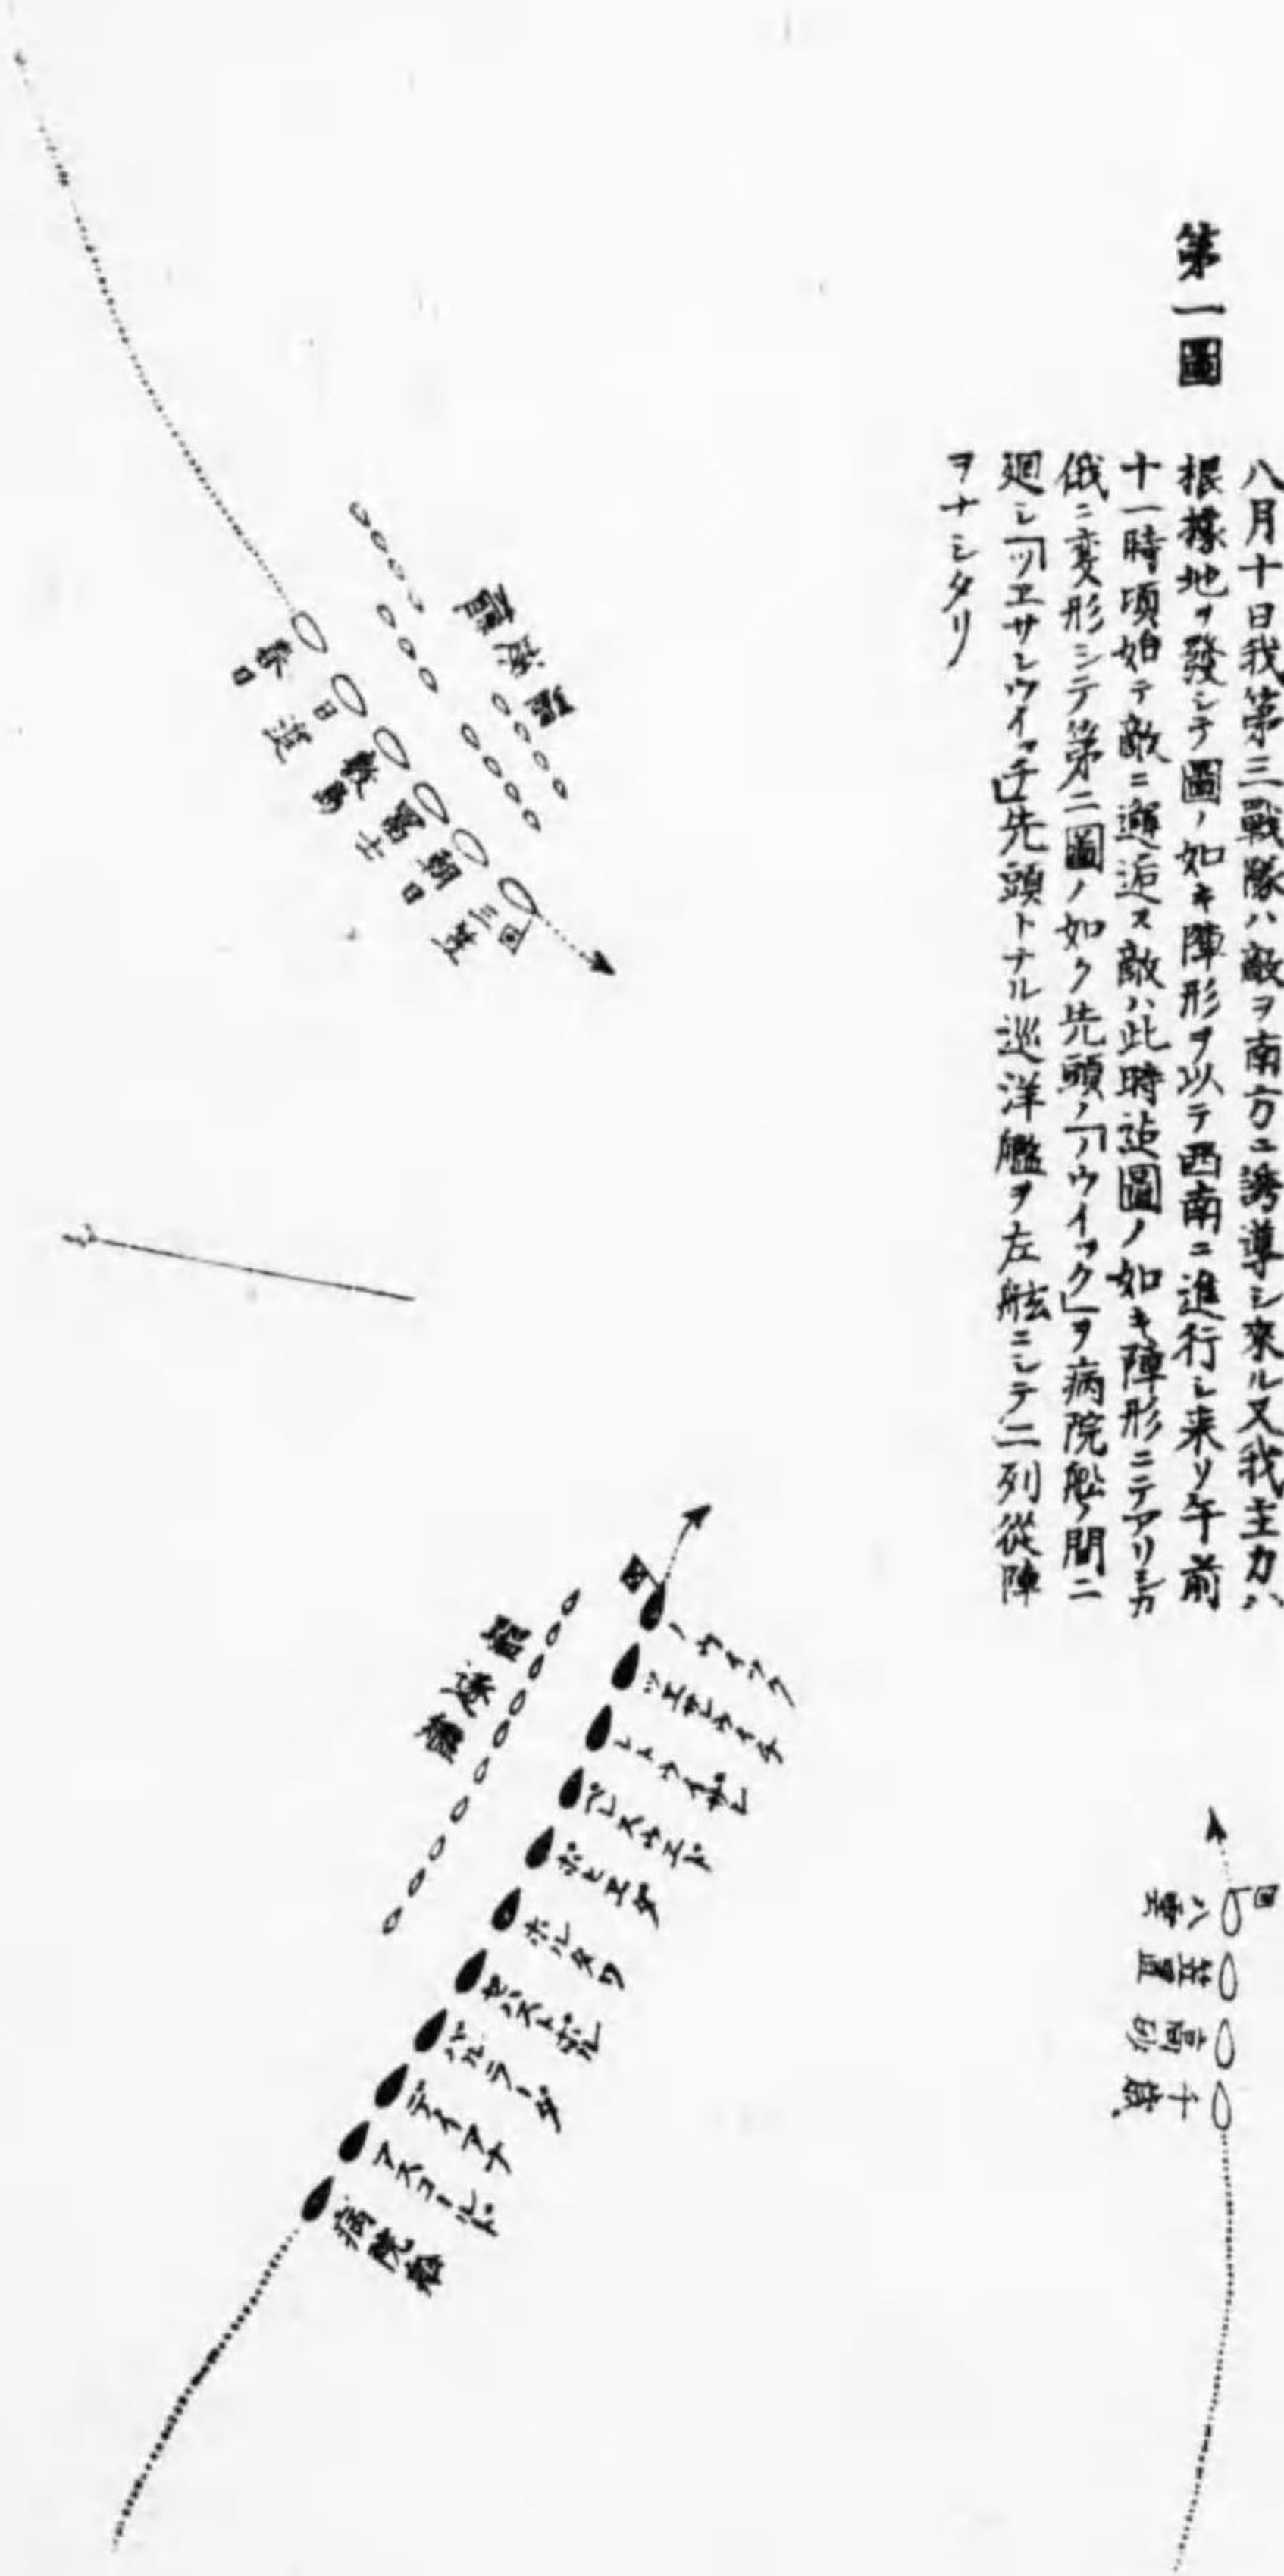 第一圖
八月十日我第三戰隊ハ敵ヲ南方ニ誘導シ來ル又我主力ハ
根據地ヲ發シテ圖ノ如キ陣形ヲ以テ西南ニ進行シ来リ午前
十一時頃始テ敵ニ邂逅ス敵ハ此時迠圖ノ如キ陣形ニテアリシカ
俄ニ変形シテ第二圖ノ如ク先頭ノ「ノウイック」ヲ病院船ノ間ニ
廻シ「ツエサレウイッチ」先頭トナル巡洋艦ヲ左舷ニシテ二列從陣
ヲナシタリ
驅逐艦
三笠
朝日
冨士
敷島
日進
春日
驅逐艦
ノウイック
ツエサレウイチ
レトウイザレ
ペレスウエト
ポビエダ
ポルタワ
セバストポル
パルラーダ
ディアナ
アスコールド
病院船
八雲
笠置
高砂
千歳